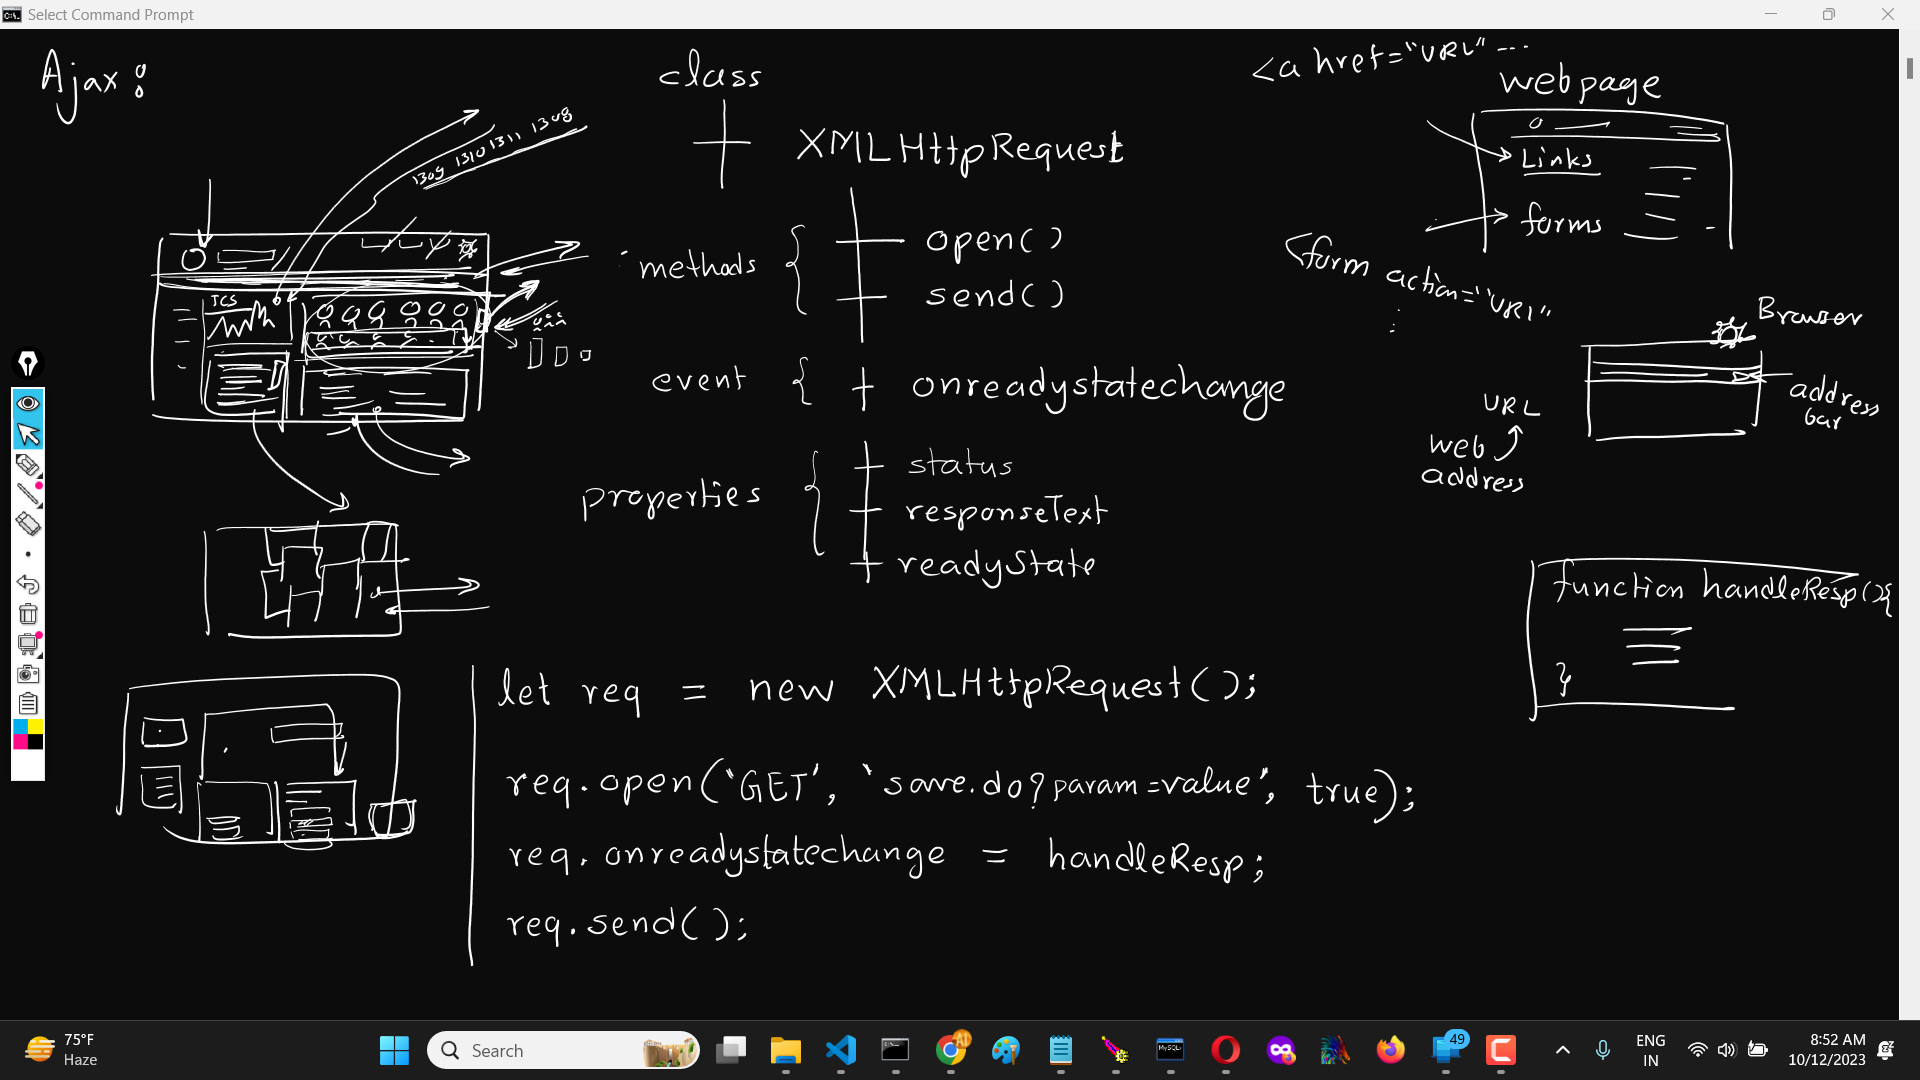 Select Command Prompt
Ajax :
class
XMLHttpRequest
methods { open()
send()
event { onreadystatechange
properties { status
responseText
readyState
1309 1310 1311 1308
TCS
<a href="URL" ...
webpage
Links
forms
<form action="URL"
Browser
address
bar
URL
web
address
function handleResp(){
}
let req = new XMLHttpRequest();
req.open('GET', 'save.do?param=value', true);
req.onreadystatechange = handleResp;
req.send();
75°F
Haze
Search
49
ENG
IN
8:52 AM
10/12/2023